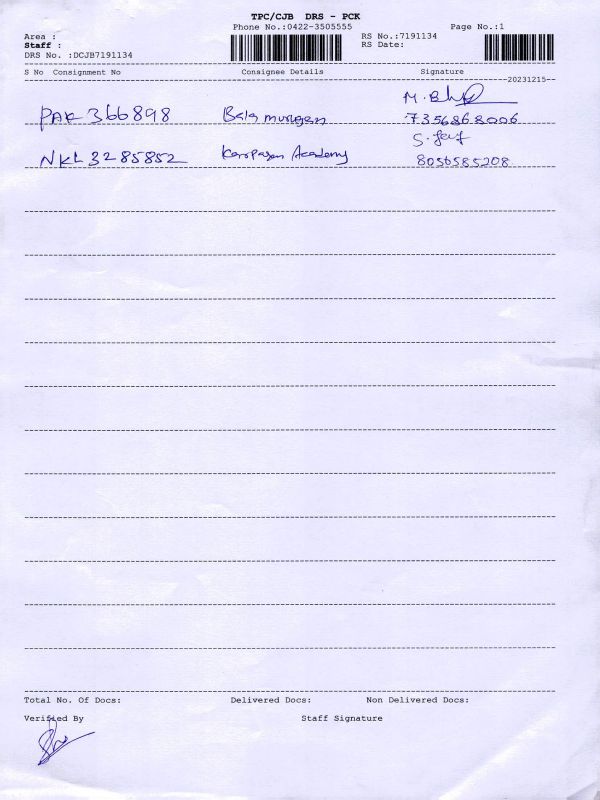 TPC/CJB DRS - PCK
Phone No.:0422-3505555
Page No.:1
Area :
RS No.:7191134
Staff :
RS Date:
DRS No. :DCJB7191134
S No Consignment No Consignee Details Signature
20231215
M. B
PAK 366898 Bala murugan 7356868006
S.
NKL 3285852 Karpagam Academy 8056585208
Total No. Of Docs: Delivered Docs: Non Delivered Docs:
Verified By Staff Signature